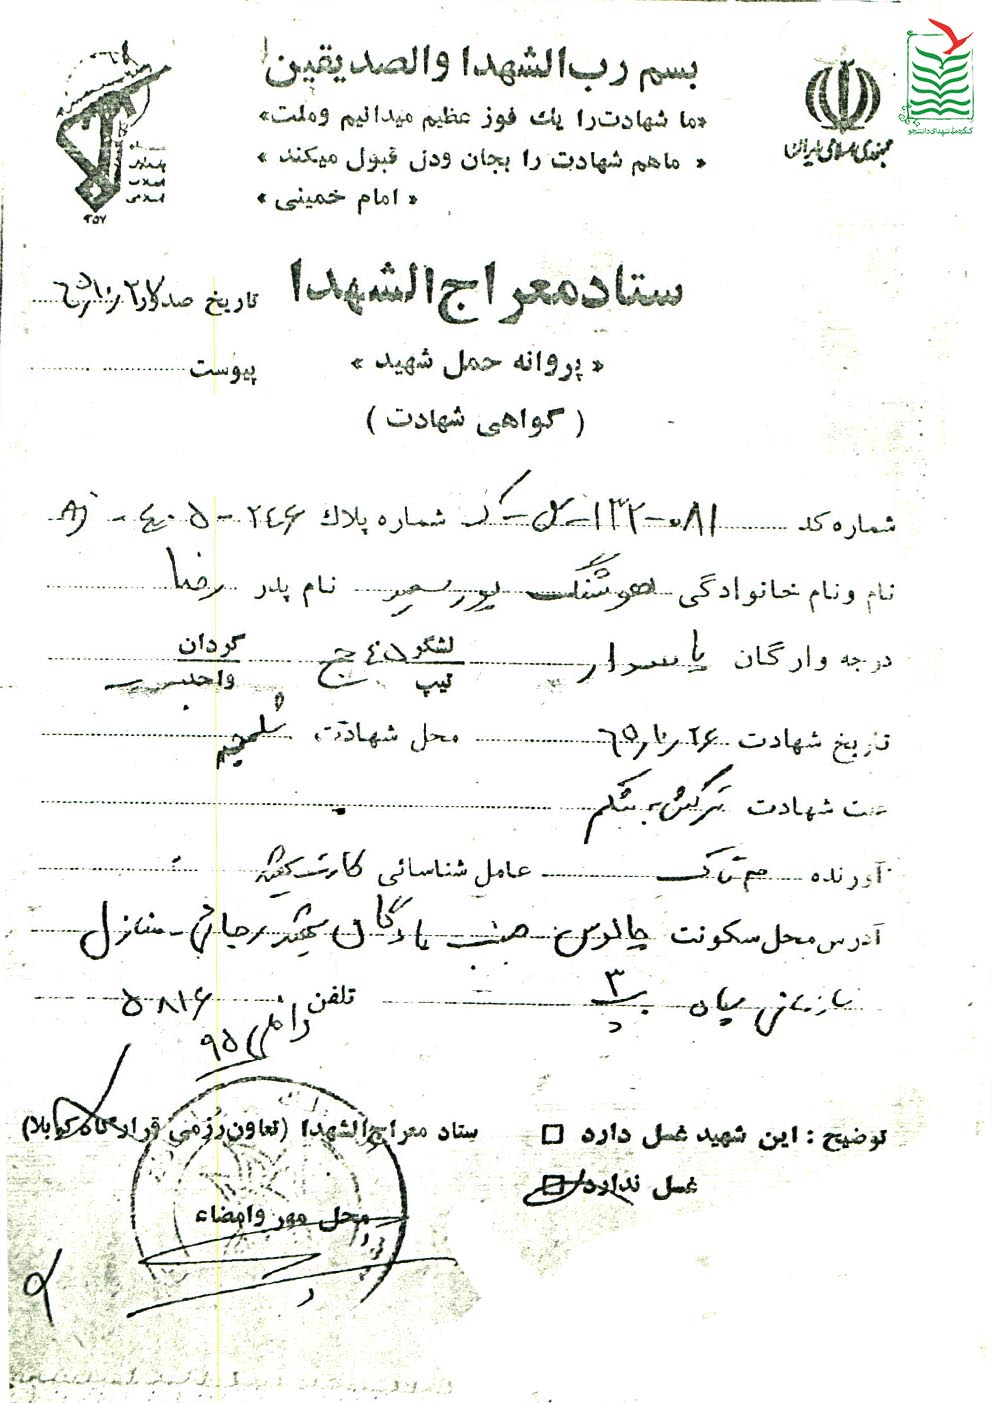 بسم رب الشهدا والصدیقین
«ما شهادت را یك فوز عظیم میدانیم وملت»
« ماهم شهادت را بجان ودل قبول میکند »
« امام خمینی »
جمهوری اسلامی ایران
کنگره ملی شهدای دانشجو
سپاه
پاسداران
انقلاب
اسلامی
۱۳۵۷
ستاد معراج الشهدا
تاریخ صدور ۶۵/۱۰/۲۷
« پروانه حمل شهید »
پیوست
( گواهی شهادت )
شماره کد ۰۸۱-۱۳۲-ل-ک شماره پلاك ۲۴۶-۴۰۵-
نام ونام خانوادگی هوشنگ پور سعید نام پدر رضا
درجه وارگان پاسدار لشگر تیپ ۴۵ ج گردان واحد
تاریخ شهادت ۶۵/۱۰/۲۶ محل شهادت شلمچه
علت شهادت ترکش به شکم
آورنده عامل شناسائی کارت
آدرس محل سکونت چالوس جنب پادگان شهید رجائی - منازل
سازمانی سپاه ۳ تلفن ۵۸۱۶
داخلی ۹۵
توضیح : این شهید غسل دارد □
ستاد معراج الشهدا (تعاون رزمی قرارگاه کربلا)
غسل ندارد □
محل مهر وامضاء